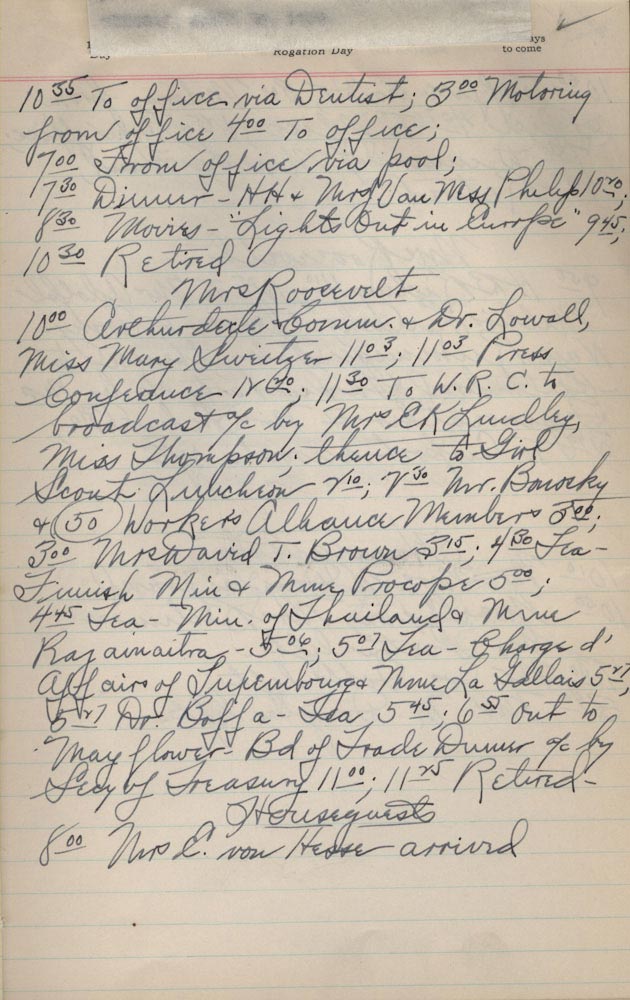 Day
Rogation Day
ays
to come
10 35 To office via Dentist; 3 00 Motoring
from office 4 00 To office;
7 00 From office via pool;
7 30 Dinner - HH & Mrs Van Ness Philip 10 20;
8 30 Movies - "Lights Out in Europe" 9 45;
10 30 Retired
Mrs Roosevelt
10 00 Arthurdale Comm. & Dr. Lowall,
Miss Mary Sweitzer 11 03; 11 03 Press
Conference 12 20; 11 30 To W. R. C. to
broadcast a/c by Mrs E K Lindley,
Miss Thompson; thence to Girl
Scout Luncheon 2 10; 2 30 Mr. Borosky
& 50 Workers Alliance Members 3 00;
3 00 Mrs David T. Brown 3 15; 4 30 Tea -
Finnish Min & Mme Procope 5 00;
4 45 Tea - Min. of Thailand & Mme
Rajainaitra - 5 06; 5 07 Tea - Charge d'
Affairs of Luxembourg & Mme La Gallais 5 27;
5 27 Dr. Boffa - Tea 5 45; 6 55 Out to
Mayflower - Bd of Trade Dinner a/c by
Secy of Treasury 11 00; 11 25 Retired -
Houseguests
8 00 Mrs E. von Hesse arrived